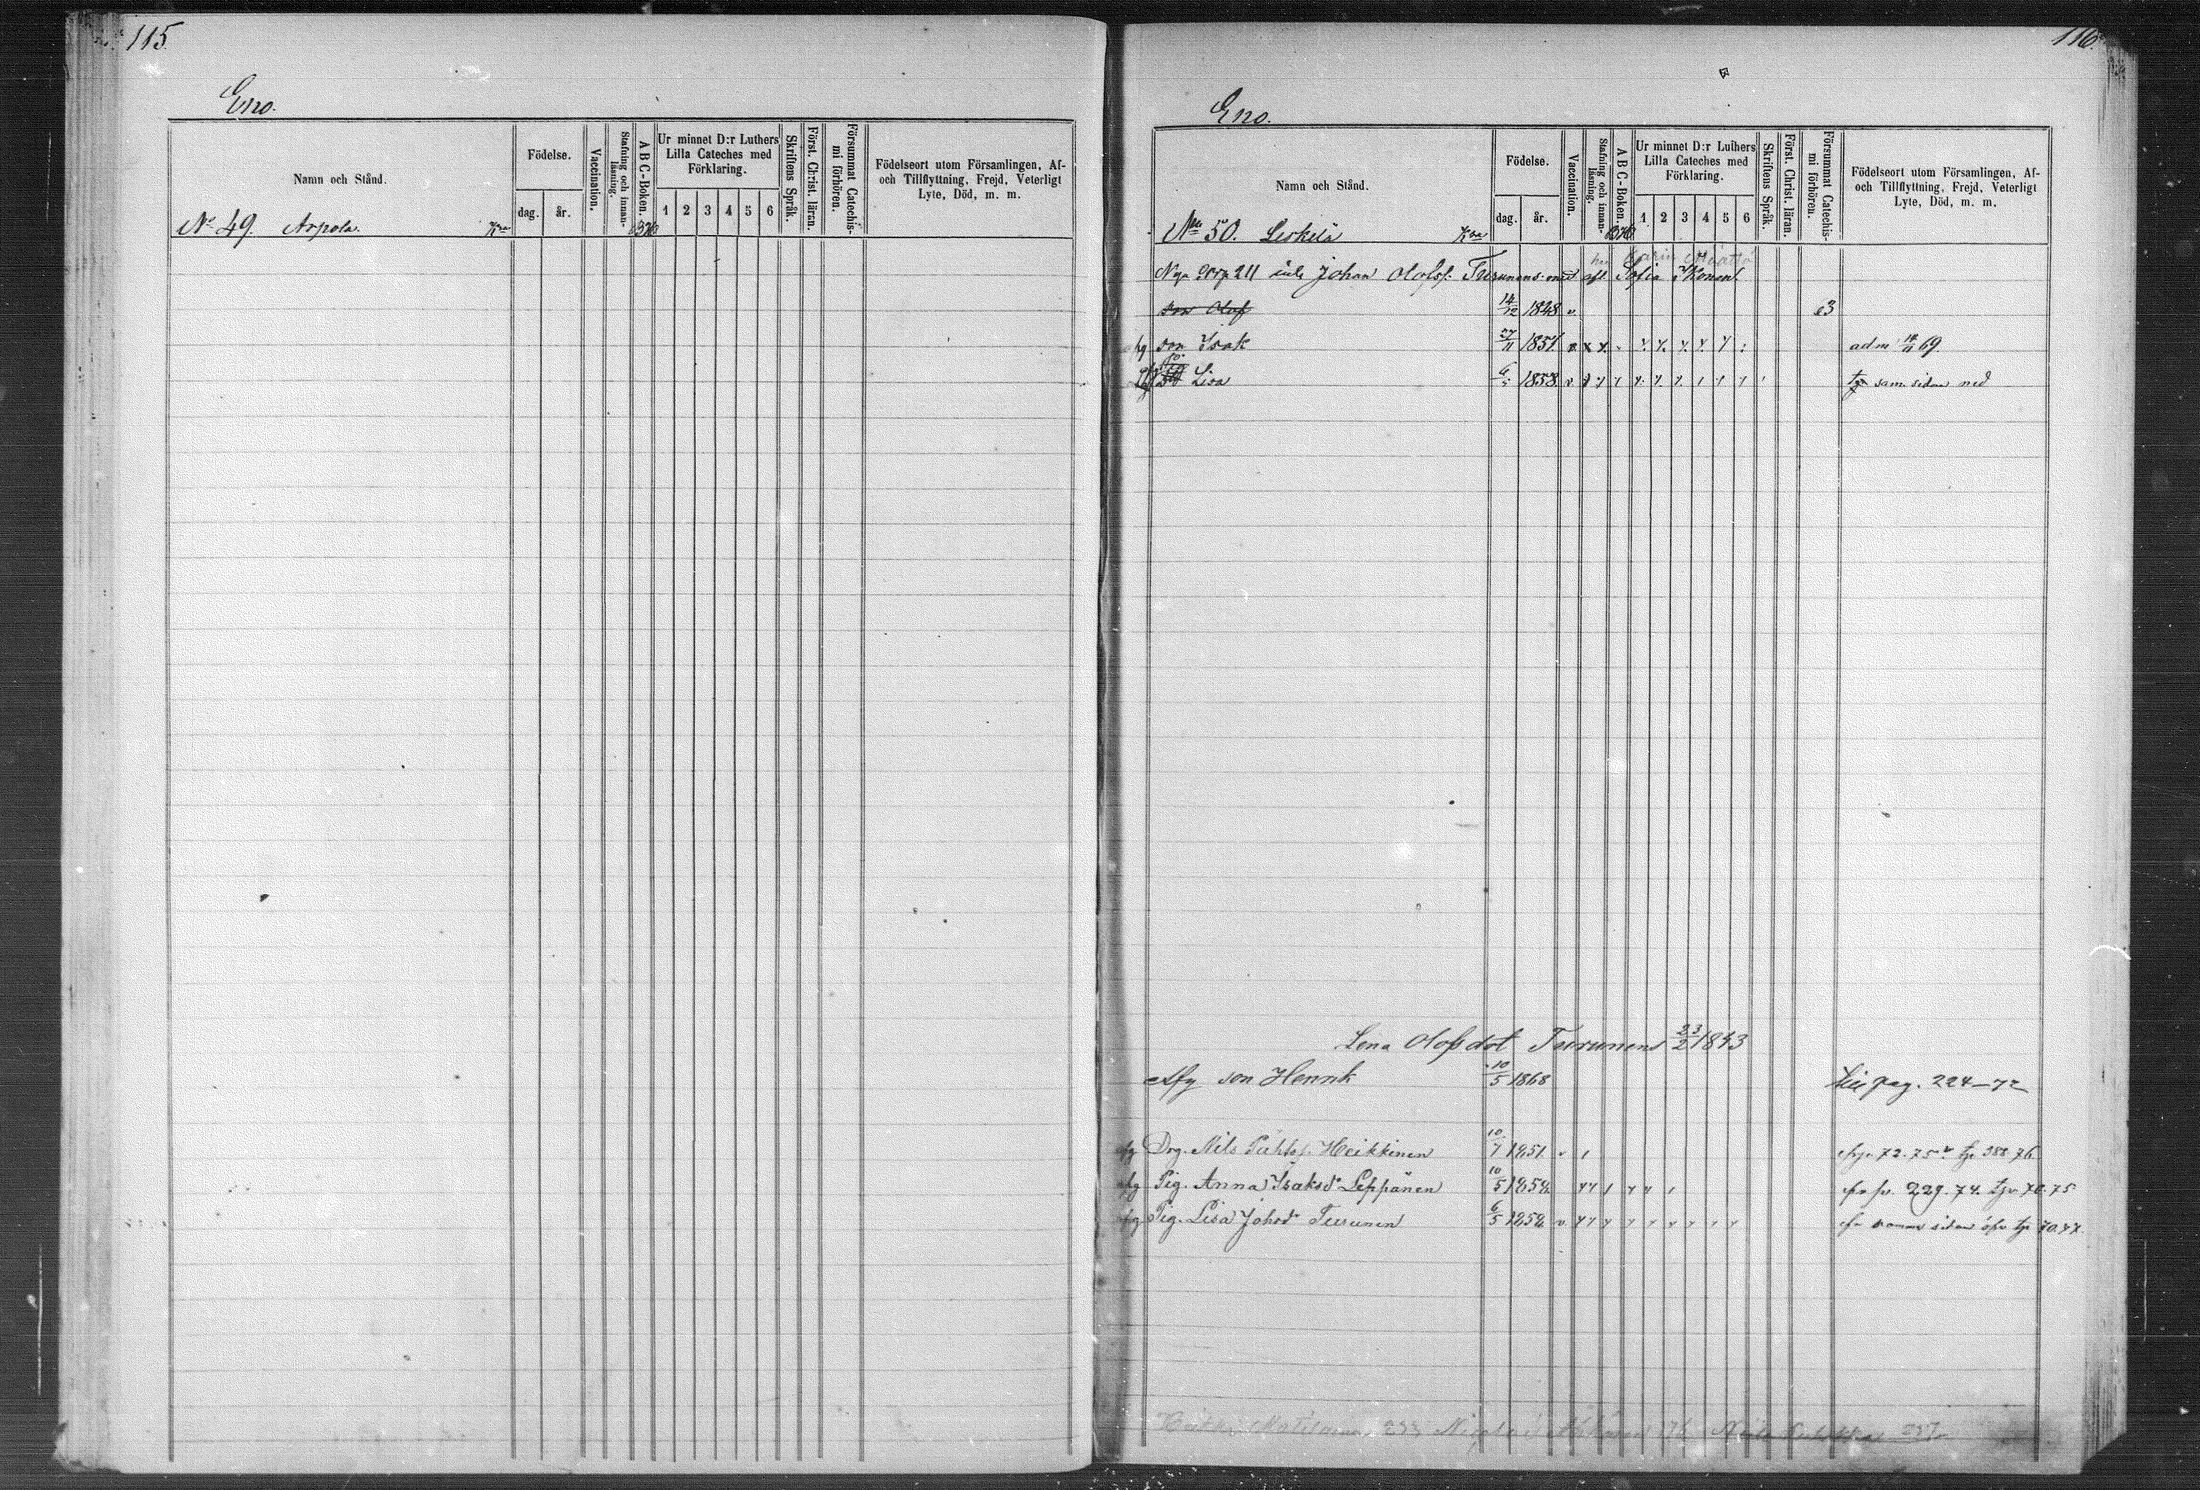 115.
Eno.
Namn och Stånd.
Födelse.
dag.
år.
Vaccination.
Stafning och innanläsning.
A B C-Boken.
Ur minnet D:r Luthers Lilla Cateches med Förklaring.
1 2 3 4 5 6
Skriftens Språk.
Först. Christ. läran.
Försummat Catechismi förhören.
Födelseort utom Församlingen, Af- och Tillflyttning, Frejd, Veterligt Lyte, Död, m. m.
No 49. Arpola.
116.
Eno.
Namn och Stånd.
Födelse.
dag.
år.
Vaccination.
Stafning och innanläsning.
A B C-Boken.
Ur minnet D:r Luthers Lilla Cateches med Förklaring.
1 2 3 4 5 6
Skriftens Språk.
Först. Christ. läran.
Försummat Catechismi förhören.
Födelseort utom Församlingen, Af- och Tillflyttning, Frejd, Veterligt Lyte, Död, m. m.
No 50. Leskelä
Johan Olofsf. Turunens Sofia Ikonen
son Olof 14/12 1848 v.
son Isak 27/11 1851 adm 69.
Lisa 1858 sam sidan ned
Lena Olofsdot Turunens 23/2 1843
Afg son Henrik 10/5 1868 pag. 224–72
afg Drg. Nils Påhlsf. Heikkinen 10/7 1851 72. 75 388 76.
afg Pig. Anna Isaksdr Leppänen 10/5 1852 229. 74. 75
afg Pig. Lisa Johsdr Turunen 6/5 1858 sidan